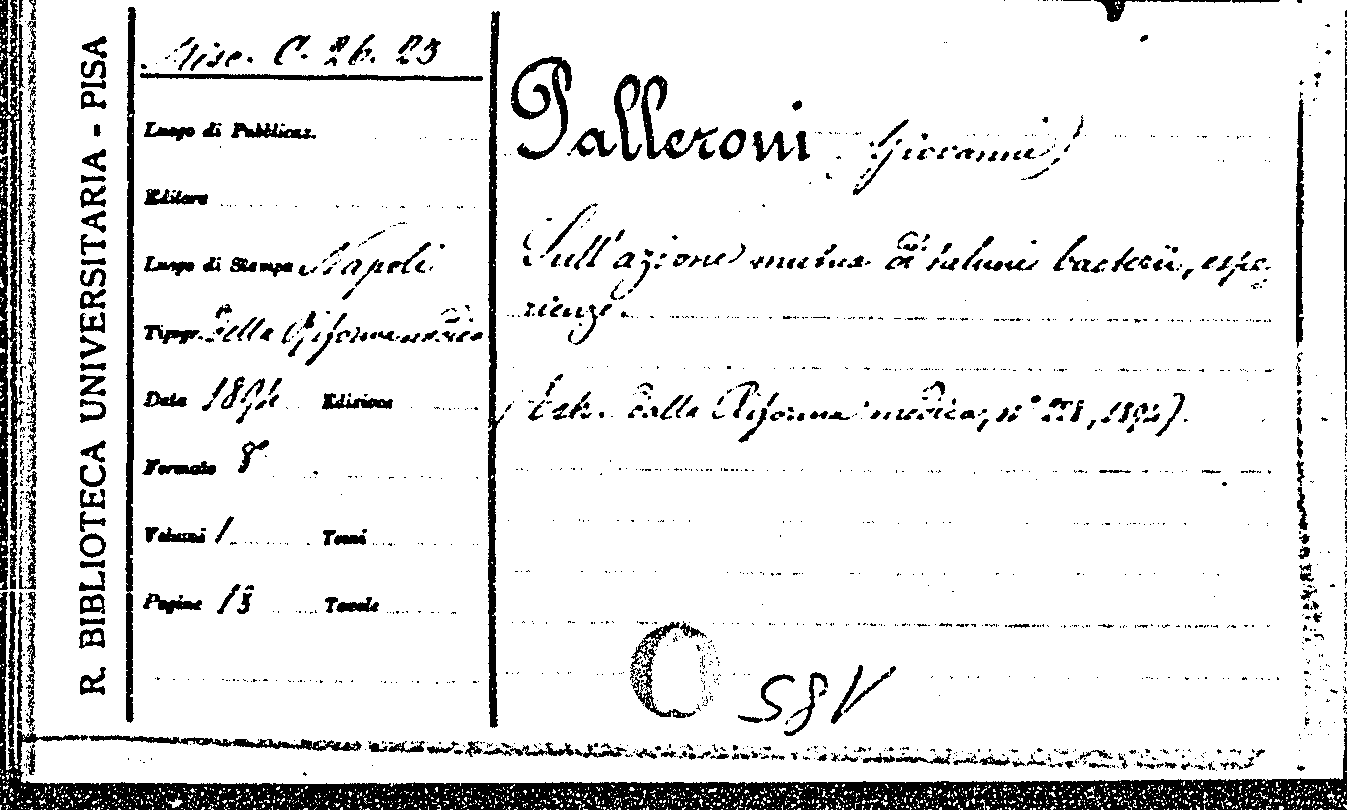 R. BIBLIOTECA UNIVERSITARIA - PISA
Misc. C. 26. 23
Luogo di Pubblicaz.
Editore
Luogo di Stampa Napoli
Tipogr. della Riforma medica
Data 1894 Edizione
Formato 8°
Volumi 1 Tomi
Pagine 13 Tavole
Palleroni (Giovanni)
Sull'azione mutua di taluni bacterii, espe-
rienze.
(Estr. dalla Riforma medica, n° 1894).
SBV